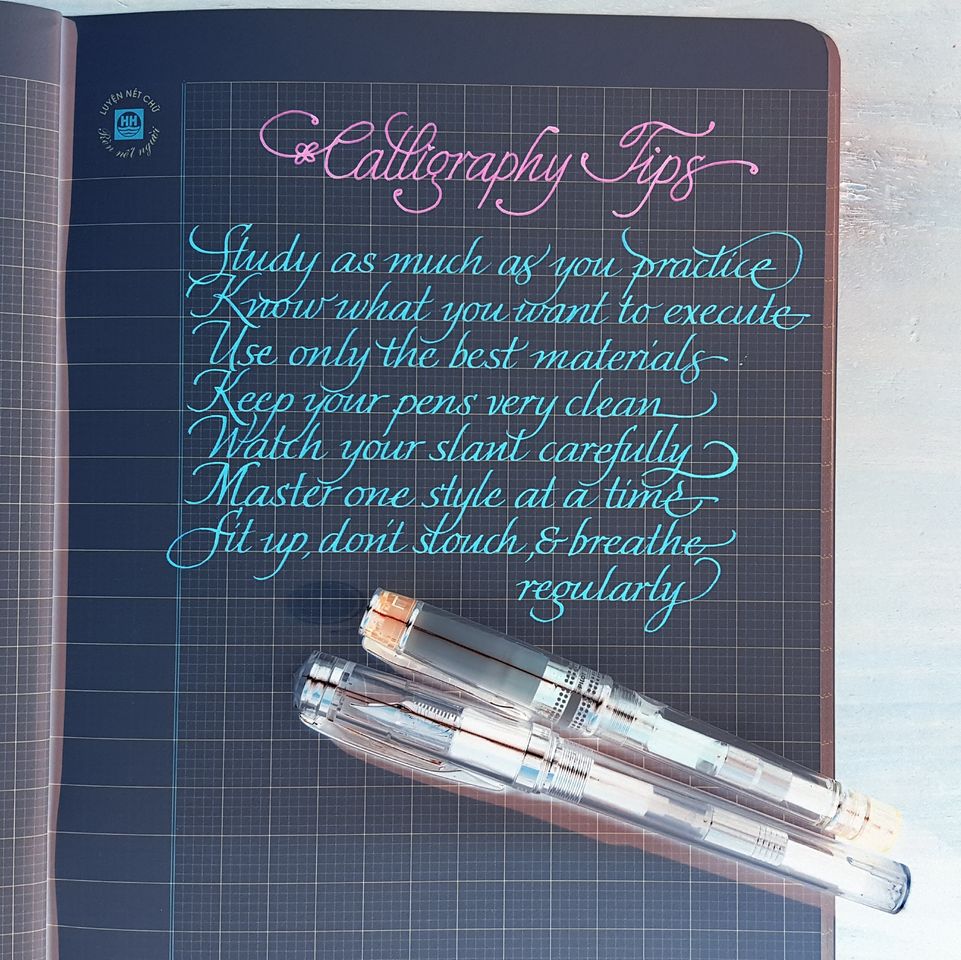 LUYỆN NÉT CHỮ
HH
Rèn nết người
Calligraphy Tips
Study as much as you practice
Know what you want to execute
Use only the best materials
Keep your pens very clean
Watch your slant carefully
Master one style at a time
Sit up, don't slouch, & breathe
regularly